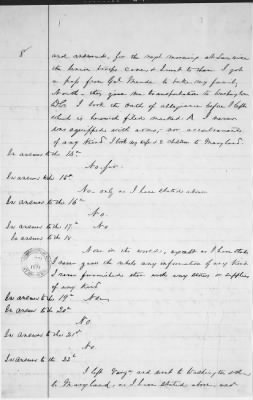 8
and around, for the next morning at sunrise
the Union troops came, & I went to them I got
a pass from Gel Meade to take my family
North - they gave me transportation to Washington
D.C. I took the oath of allegiance before I left
which is herewith filed marked A. I never
was equipped with arms, nor accoutrements
of any kind I took my wife & 2 children to Maryland.
In answer to the 14th
No. Sir.
In answer to the 15th
No - only as I have stated above
In answer to the 16th
No.
In answer to the 17th No
In answer to the 18
None in the world, except as I have stated
I never gave the rebels any information of any kind
I never furnished them with any stores or supplies
of any kind
In answer to the 19th
In answer to the 20th
No
In answer to the 21st
No
In answer to the 22d
I left and went to Washington &
to Maryland, as I have stated above, and